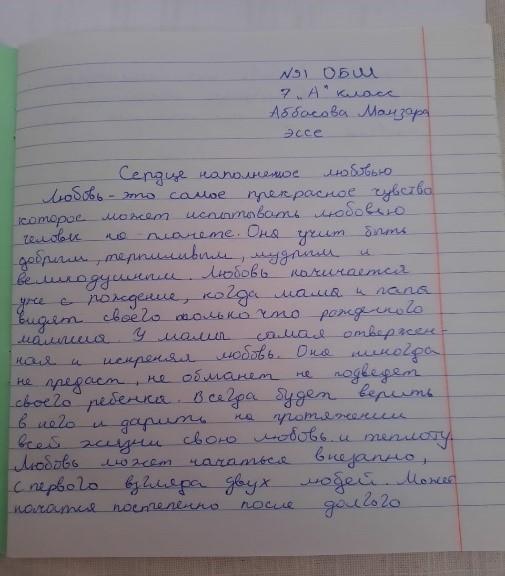 №91 ОБШ
7 „А" класс
Аббасова Манзара
эссе
Сердце наполненое любовью
Любовь - это самое прекрасное чувство
которое может испотывать любовью
человек на планете. Она учит быть
добрым, терпиливым, мудрым и
великодушным. Любовь начинается
уже с рождение, когда мама и папа
видят своего только что рожденного
малыша. У мамы самая отвержен-
ная и искреняя любовь. Она никогда
не предаст, не обманет не подведет
своего ребенка. Всегда будет верить
в него и дарить на протяжении
всей жизни свою любовь и теплоту.
Любовь может начаться внезапно,
с первого взгляда двух людей. Может
начатся постепенно после долгого